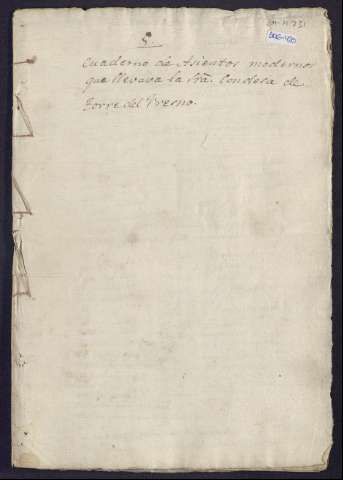 5.
Cuaderno de Asientos modernos
que llevava la Sra. Condesa de
Torre del Fresno.